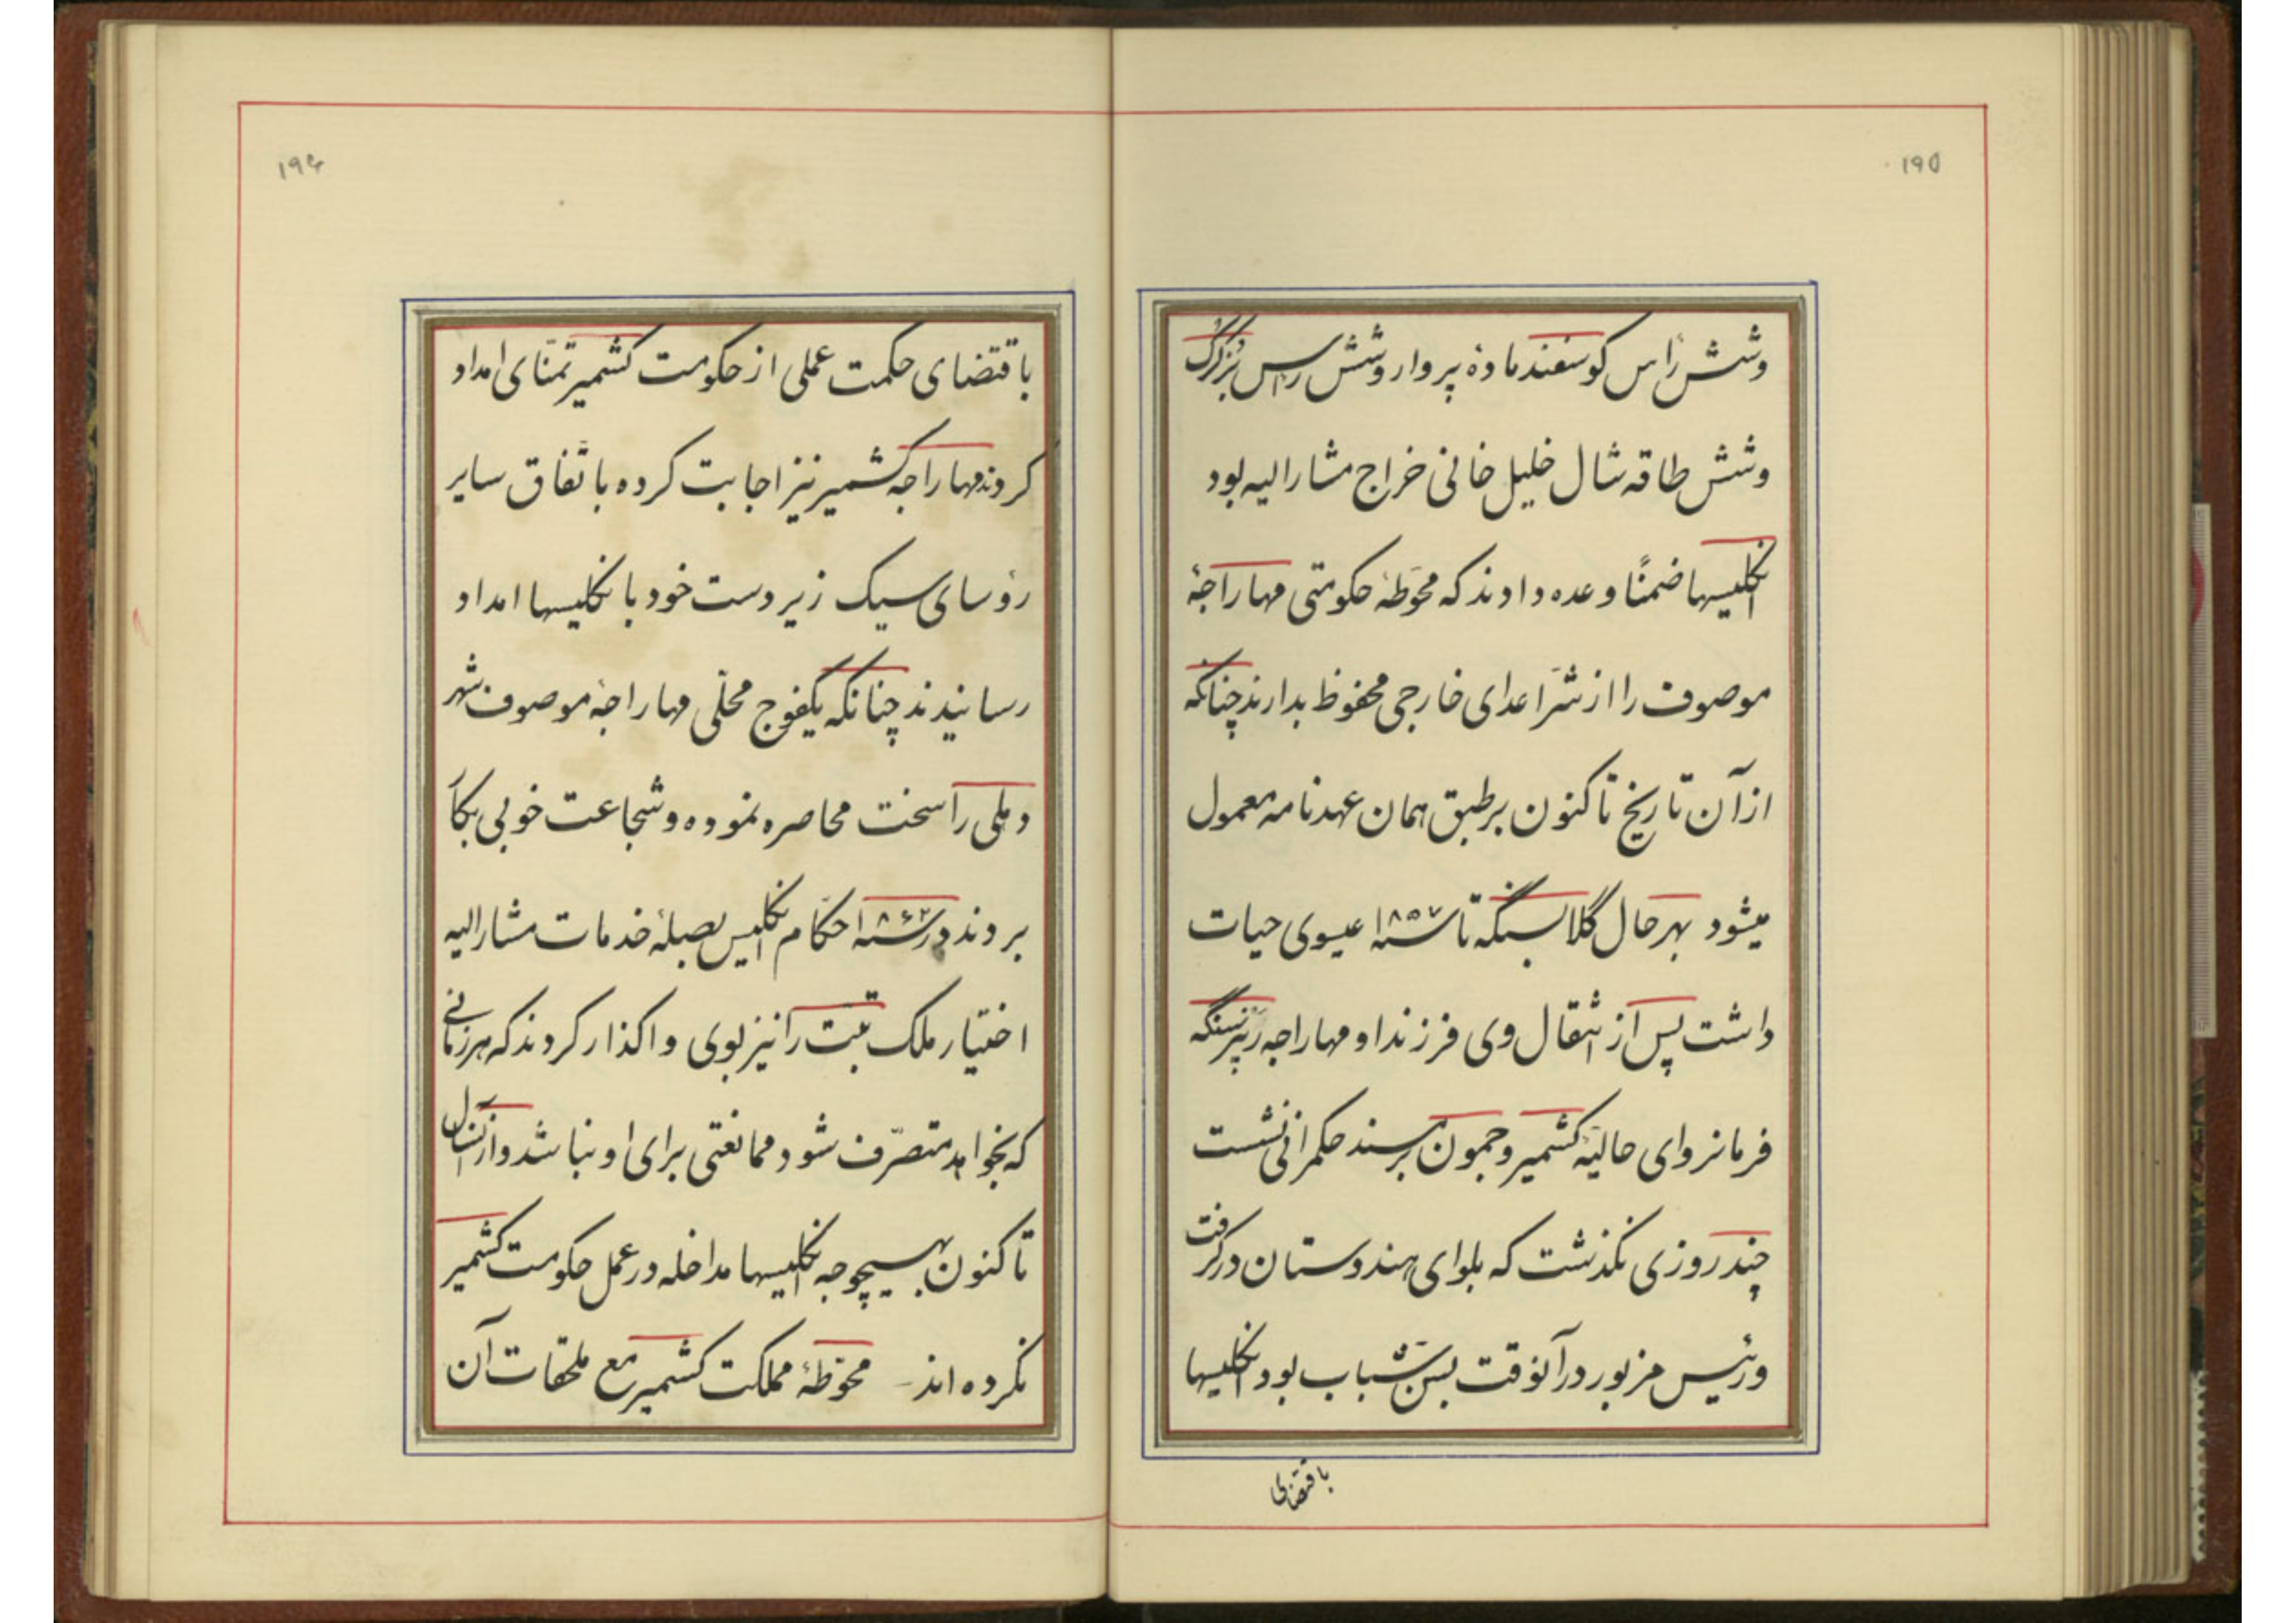 ۱۹۵
وشش رأس گوسفند ماده پروار وشش رأس بزکرک
وشش طاقه شال خلیل خانی خراج مشارالیه بود
انکلیسها ضمنًا وعده دادند که محوّطهٔ حکومتی مهاراجهٔ
موصوف را از شرّ اعدای خارجی محفوظ بدارند چنانکه
از آن تاریخ تا کنون برطبق همان عهدنامه معمول
میشود بهرحال کلابسنگه تا سنه ۱۸۵۷ عیسوی حیات
داشت پس از انتقال وی فرزند او مهاراجه رنبیرسنگه
فرمانروای حالیّهٔ کشمیر وجمون برمسند حکمرانی نشست
چند روزی نکذشت که بلوای هندوستان درکرفت
ورئیس مزبور در آنوقت بسنّ شباب بود انکلیسها
باقتضای
۱۹۶
باقتضای حکمت عملی از حکومت کشمیر تمنّای امداد
کردند مهاراجه کشمیر نیز اجابت کرده باتّفاق سایر
رؤسای سیک زیردست خود بانکلیسها امداد
رسانیدند چنانکه یکفوج محلّی مهاراجهٔ موصوف شهر
دهلی را سخت محاصره نموده وشجاعت خوبی بکا
بردند در سنه ۱۸۶۲ حکّام انکلیس بصلهٔ خدمات مشارالیه
اختیار ملک تبّت را نیز بوی واکذار کردند که هرزمانی
که بخواهد متصرّف شود ممانعتی برای او نباشد واز آنسال
تا کنون بهیچوجه انکلیسها مداخله در عمل حکومت کشمیر
نکرده‌اند - محوّطهٔ مملکت کشمیر مع ملحقات آن